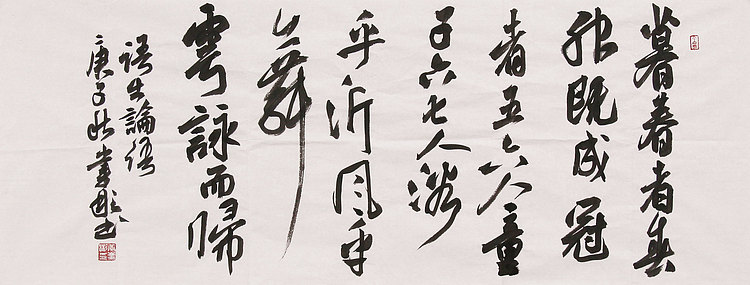 暮春者春
服既成冠
者五六人童
子六七人浴
乎沂风乎
舞
雩詠而歸
語出論語
庚子秋